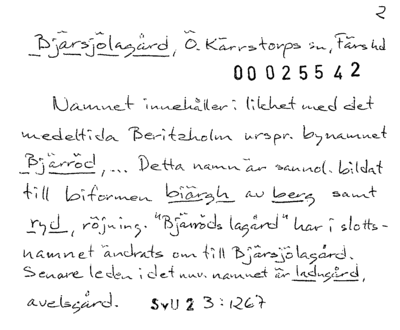 2
Bjärsjölagård, Ö. Kärrstorps sn, Färs hd
00025542
Namnet innehåller i likhet med det
medeltida Beritzholm urspr. bynamnet
Bjärröd, ... Detta namn är sannol. bildat
till biformen biärgh av berg samt
ryd, röjning. "Bjärröds lagård" har i slotts-
namnet ändrats om till Bjärsjölagård.
Senare leden i det nuv. namnet är ladugård,
avelsgård. SvU 2 3:1267